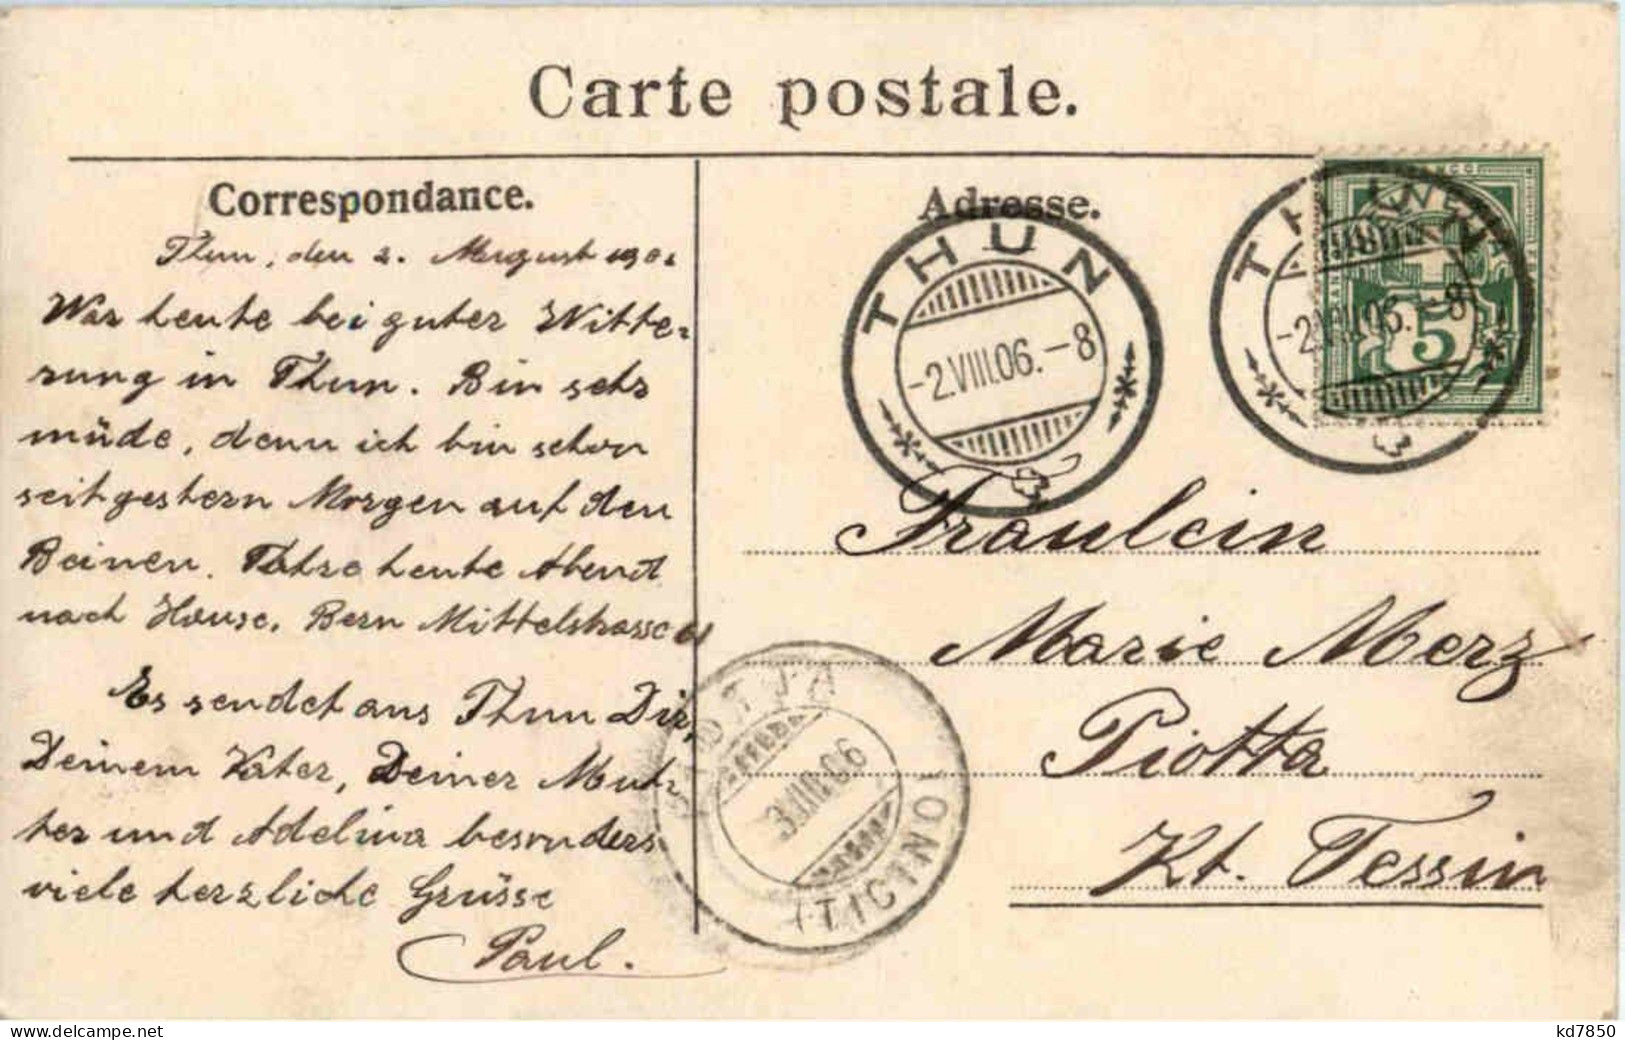 Carte postale.
Correspondance.
Adresse.
Thun, den 2. August 190
War heute bei guter Witte-
rung in Thun. Bin sehr
müde, denn ich bin schon
seit gestern Morgen auf den
Beinen. Fahre heute Abend
nach Hause. Bern Mittelstrasse
Es sendet aus Thun Dir,
Deinem Vater, Deiner Mut-
ter und Adelina besonders
viele herzliche Grüsse
Paul.
THUN
-2.VIII.06.-8
THUN
-2.VIII.06.-8
FRANCO
5
Fräulein
Marie Merz
Piotta
Kt. Tessin
PIOTTA
3.VIII.06
(TICINO)
kd7850